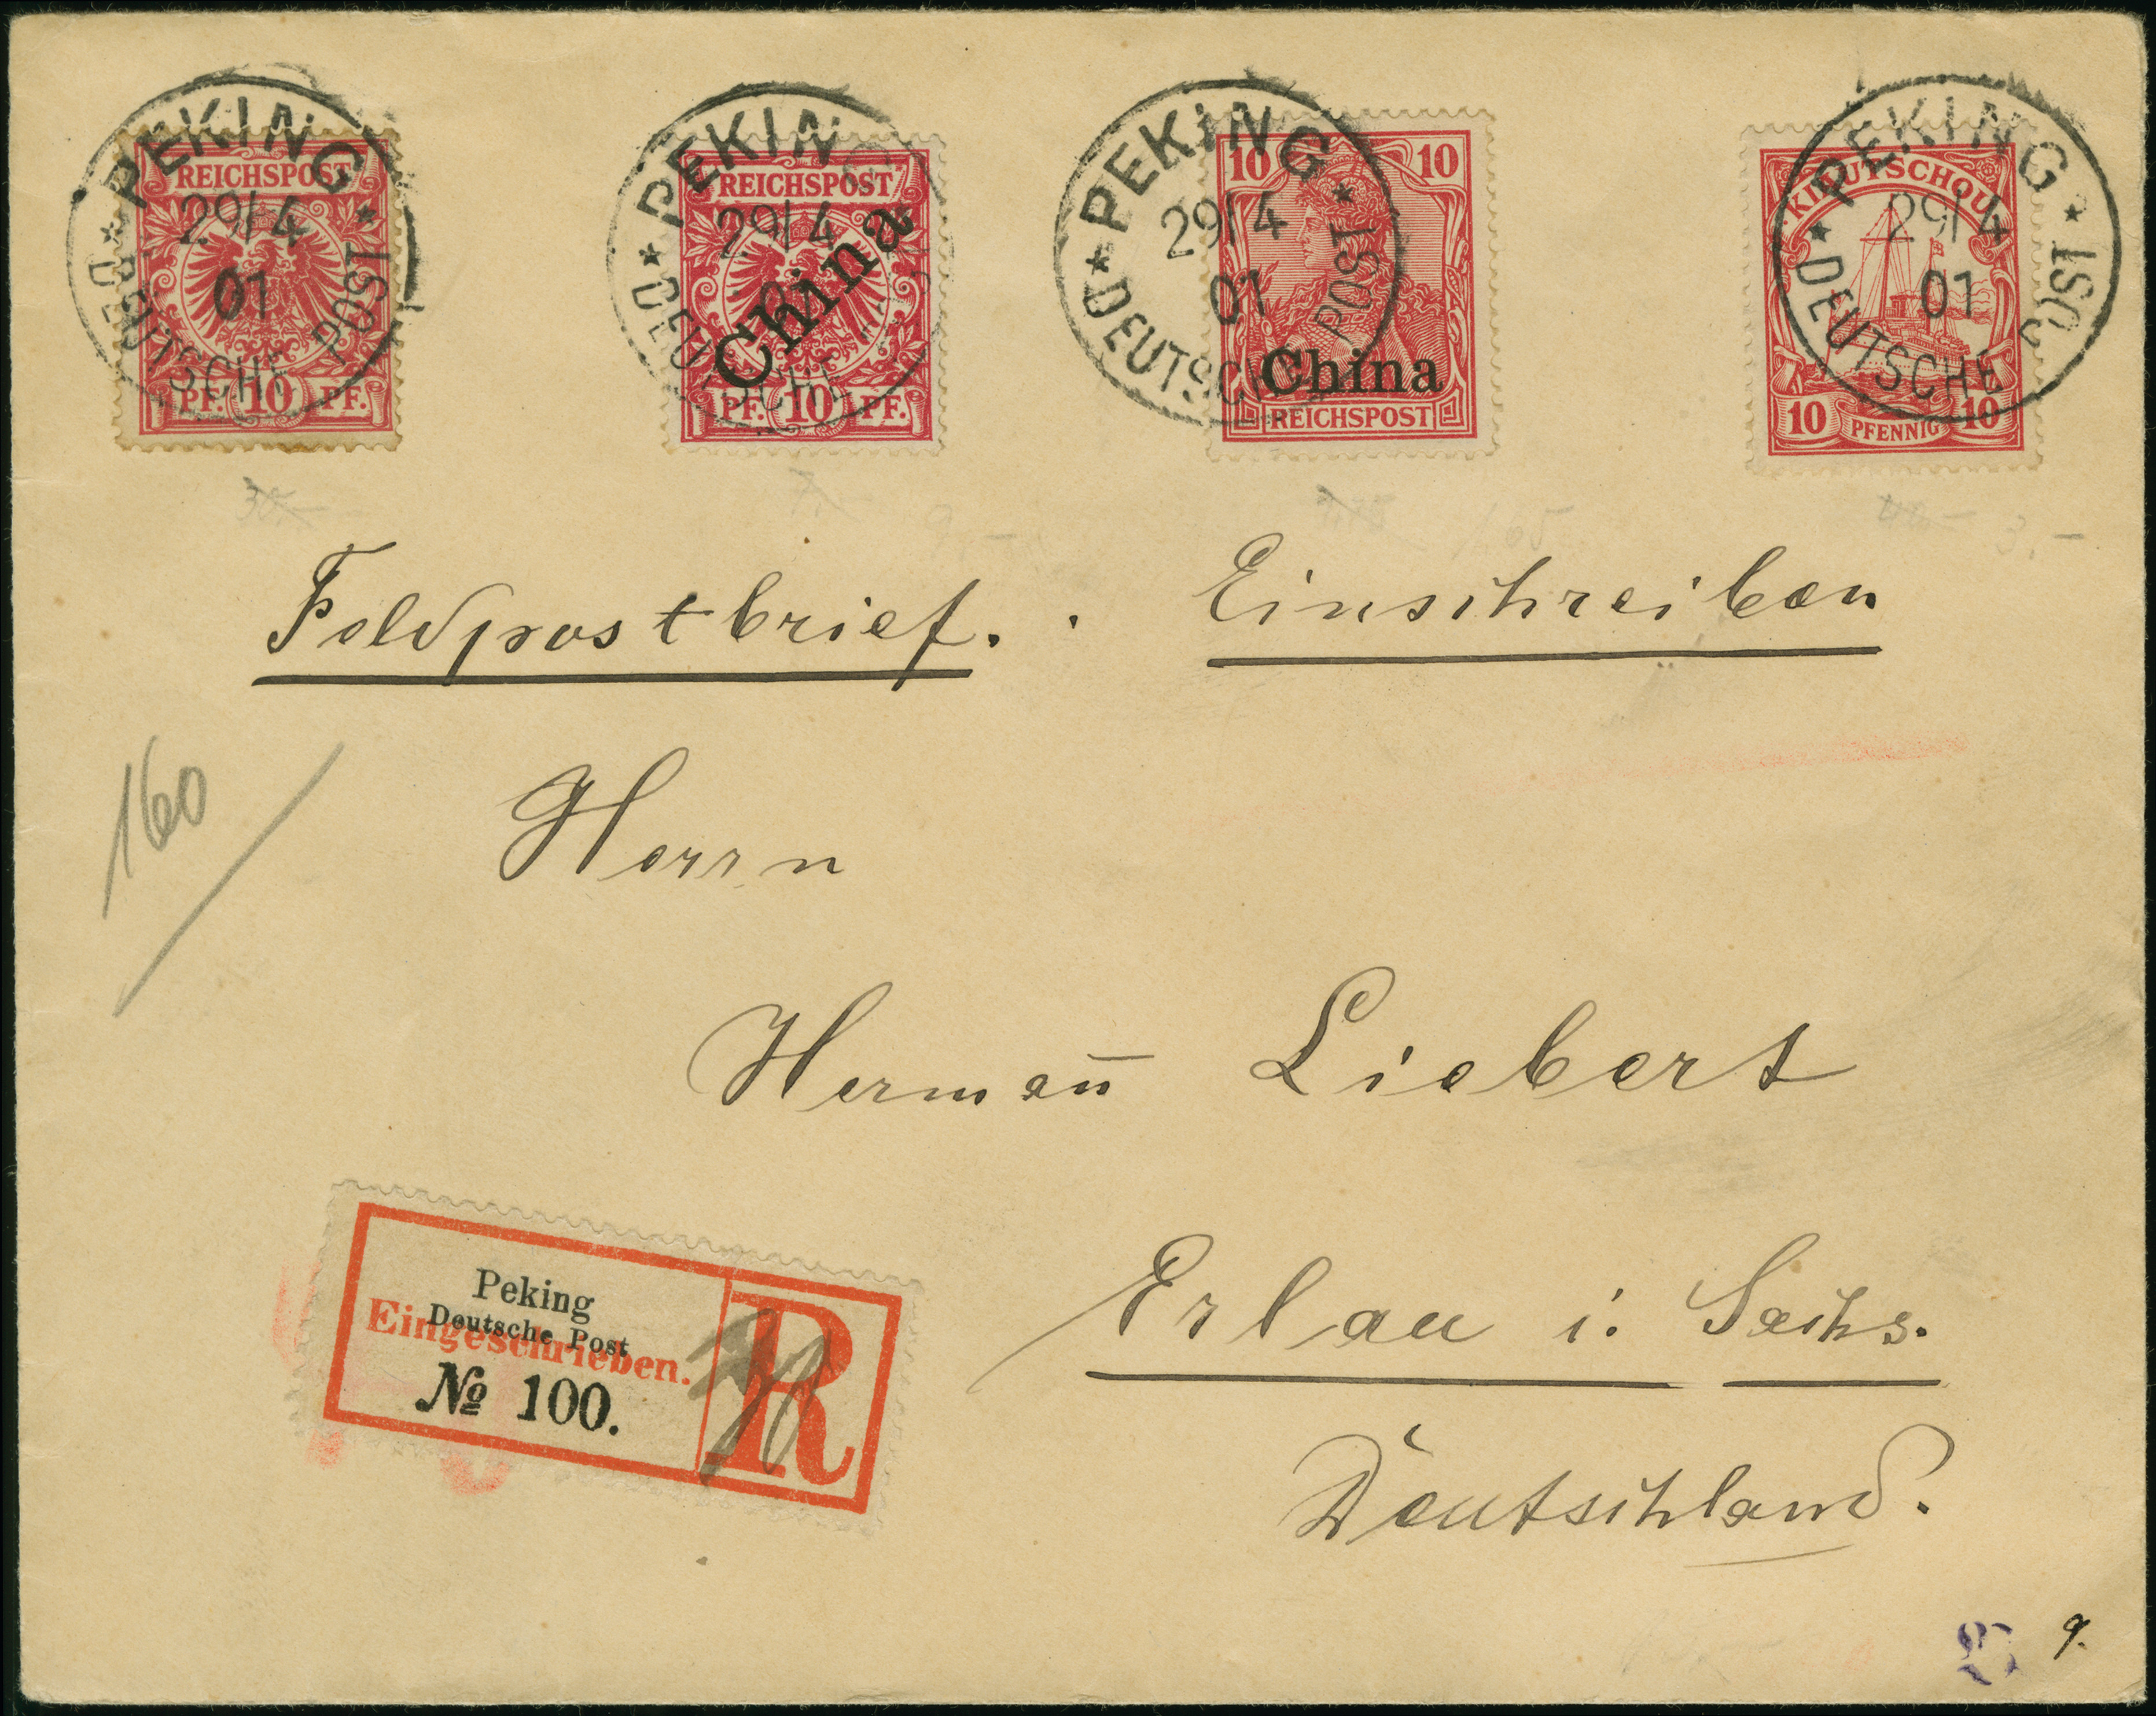 PEKING
29/4
01
* DEUTSCHE POST *
REICHSPOST
PF. 10 PF.
PEKING
29/4
* DEUTSCHE
REICHSPOST
China
PF. 10 PF.
PEKING
29/4
01
* DEUTSCHE POST *
10 10
China
REICHSPOST
PEKING
29/4
01
* DEUTSCHE POST *
KIAUTSCHOU
10 PFENNIG 10
Feldpostbrief. Einschreiben
160
Herrn
Herman̄ Liebert
Erlau i. Sachs.
Deutschland.
Peking
Deutsche Post
Eingeschrieben.
№ 100.
R